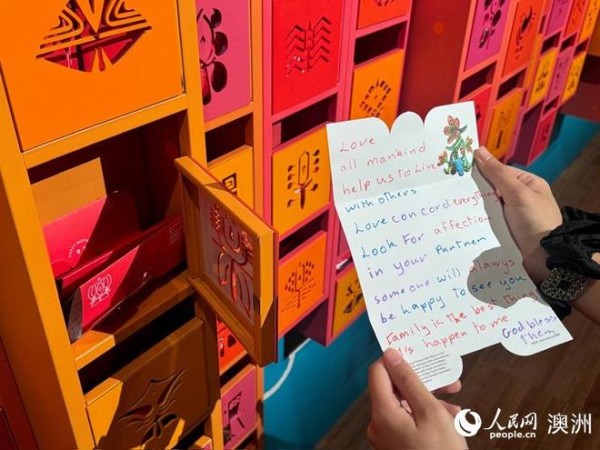 Love
all mankind
help us to Live
with others
Love concord everything
Look For affection
in your Partners
someone will always
be happy to see you
Family is the best thing
it's happen to me
God bless
them
人民网 澳洲
people.cn